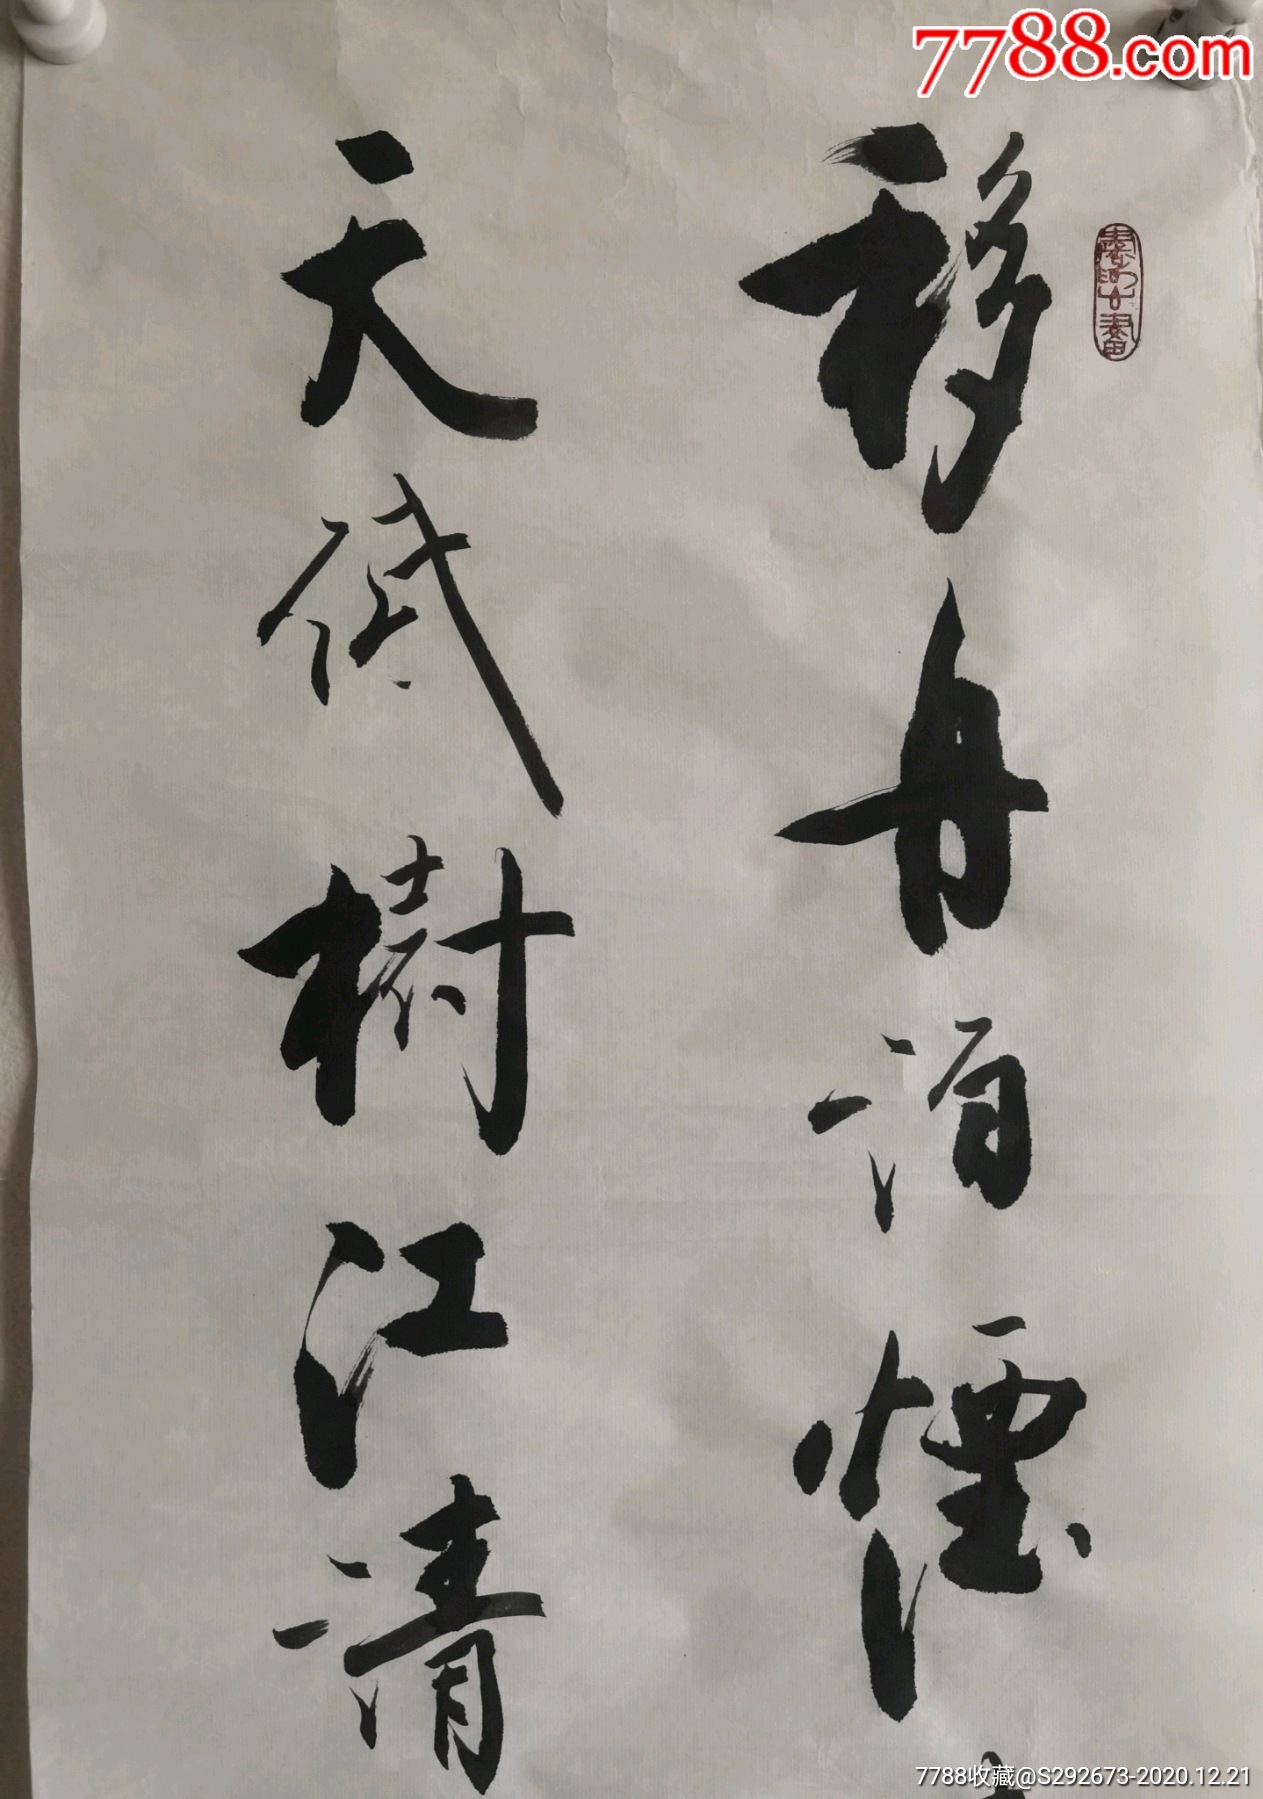 7788.com
移舟泊煙
天低樹江清
7788收藏@S292673-2020.12.21